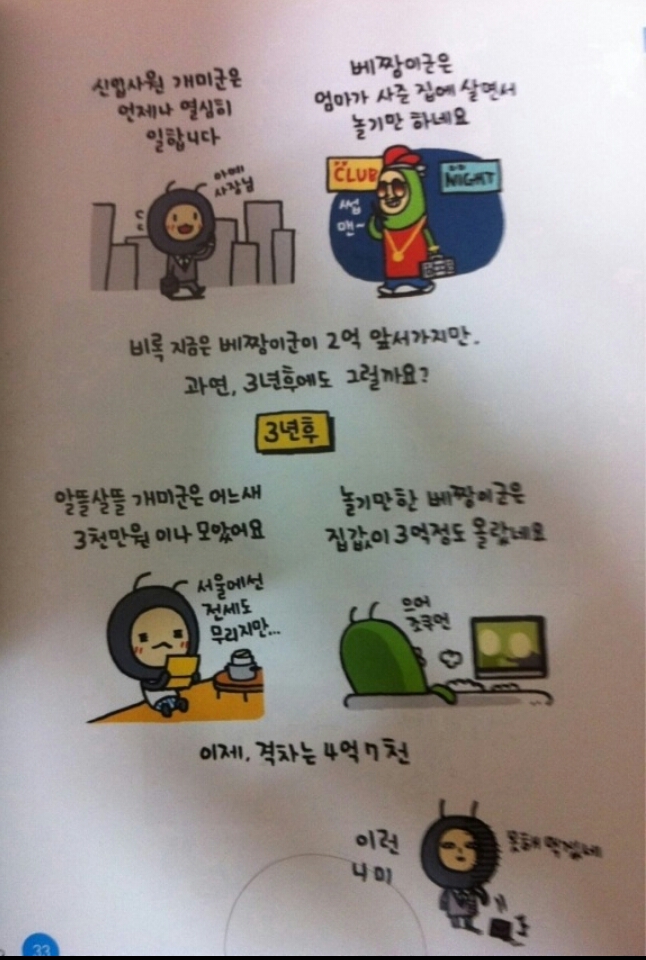 신입사원 개미군은
언제나 열심히
일합니다
아예
사장님
베짱이군은
엄마가 사준 집에 살면서
놀기만 하네요
CLUB
NIGHT
썹
맨~
비록 지금은 베짱이군이 2억 앞서가지만.
과연, 3년후에도 그럴까요?
3년후
알뜰살뜰 개미군은 어느새
3천만원 이나 모았어요
서울에선
전세도
무리지만...
놀기만한 베짱이군은
집값이 3억정도 올랐네요
으어
조쿠먼
이제, 격차는 4억 7천
이런
니미
못해 먹겠네
33